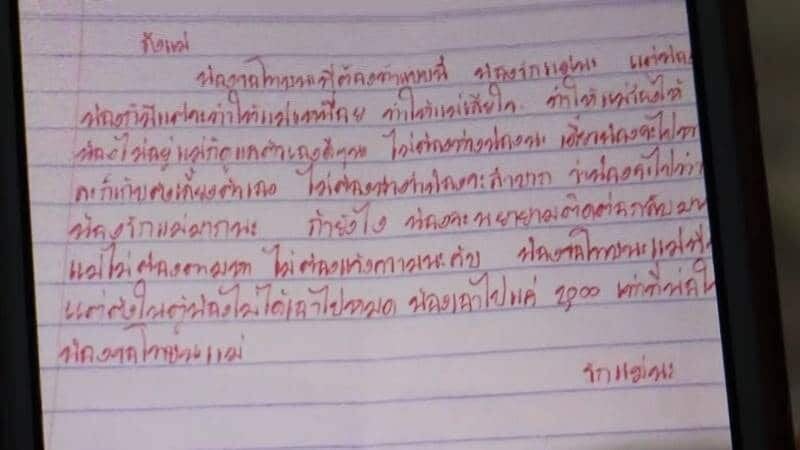 ถึงแม่
น้องขอโทษนะที่ต้องทำแบบนี้ น้องรักแม่นะ แต่น้อง
น้องก็มีแต่จะทำให้แม่เหนื่อย ทำให้แม่เสียใจ ทำให้แม่ร้องไห้
น้องไม่อยู่แม่ก็ดูแลตัวเองดีๆนะ ไม่ต้องห่วงน้องนะ น้องจะไป
จะก็เก็บเลี้ยงตัวเอง ไม่ต้องห่วงว่าน้องจะลำบาก ว่าน้องจะไป
น้องรักแม่มากนะ ถ้ายังไง น้องจะพยายามติดต่อกลับมา
แม่ไม่ต้องตามหา ไม่ต้องแจ้งความนะครับ น้องขอโทษนะแม่
แต่ตังในตู้น้องไม่ได้เอาไปหมด น้องเอาไปแค่ 2900
น้องขอโทษนะแม่
รักแม่นะ